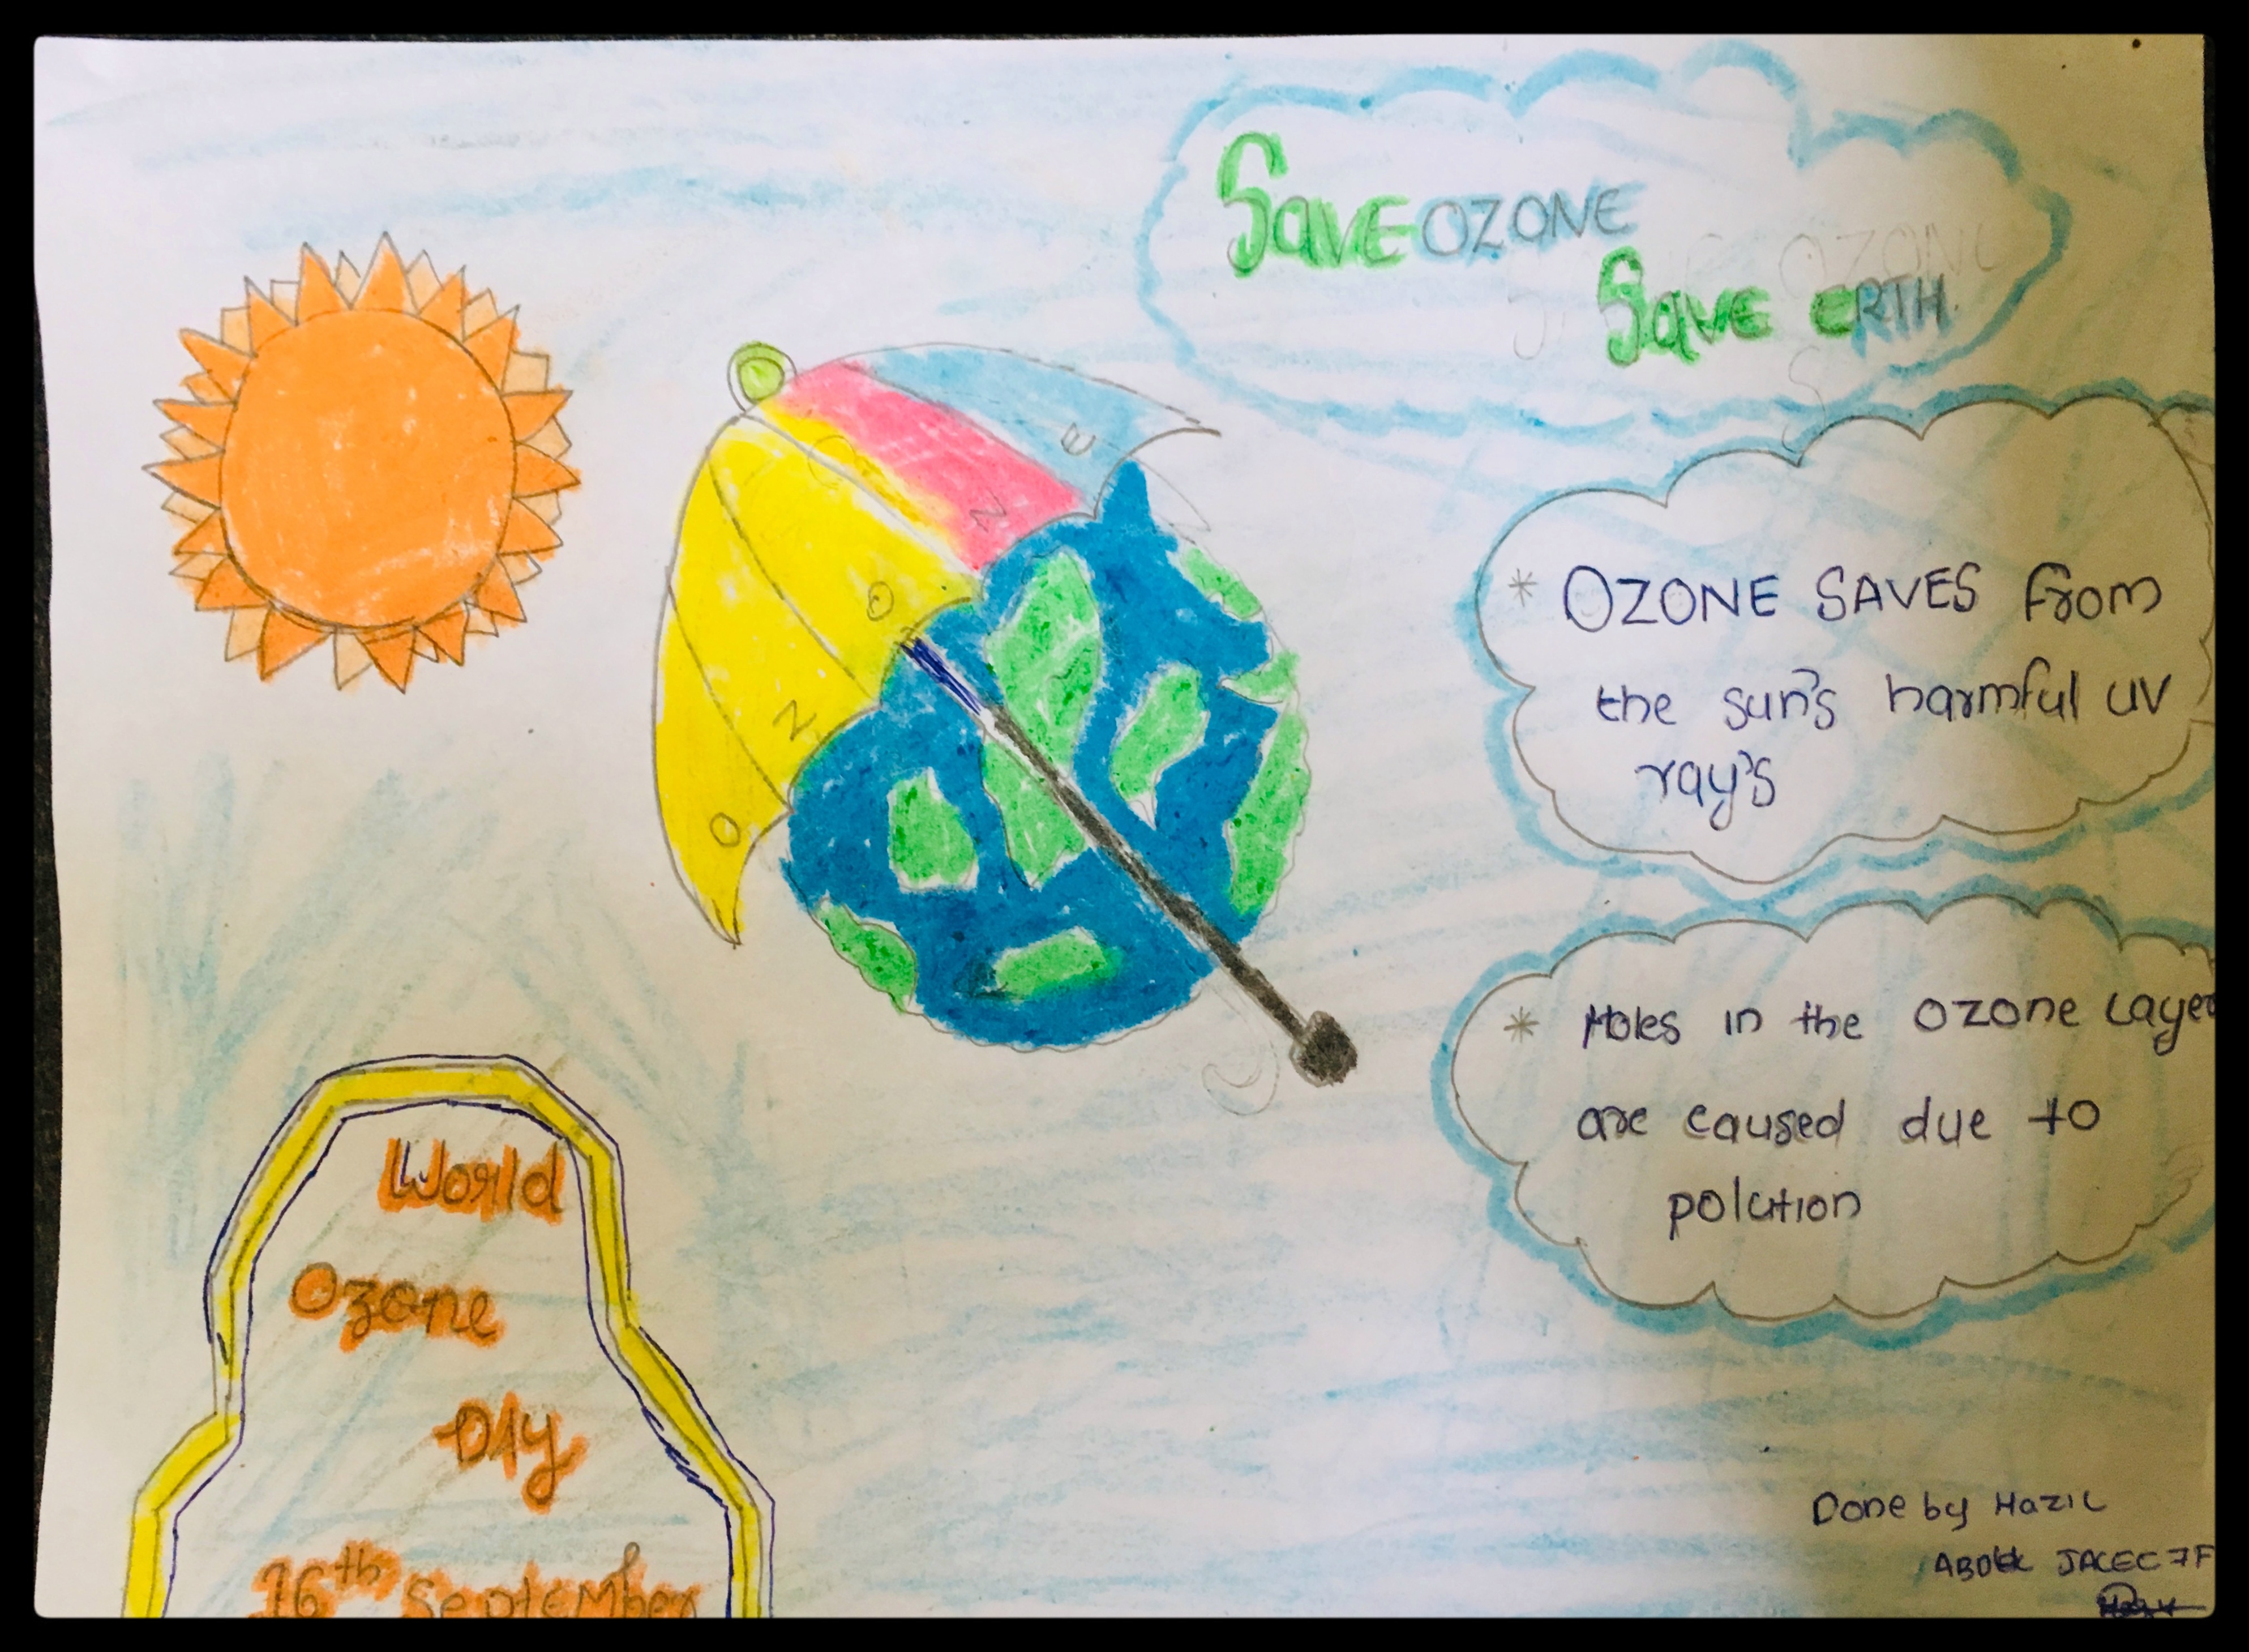 Save OZONE
Save ERTH.
O Z O N E
* OZONE SAVES from
the sun's harmful UV
ray's
* Holes in the ozone layer
are caused due to
polution
World
Ozone
DAy
16th September
Done by Hazil
7F